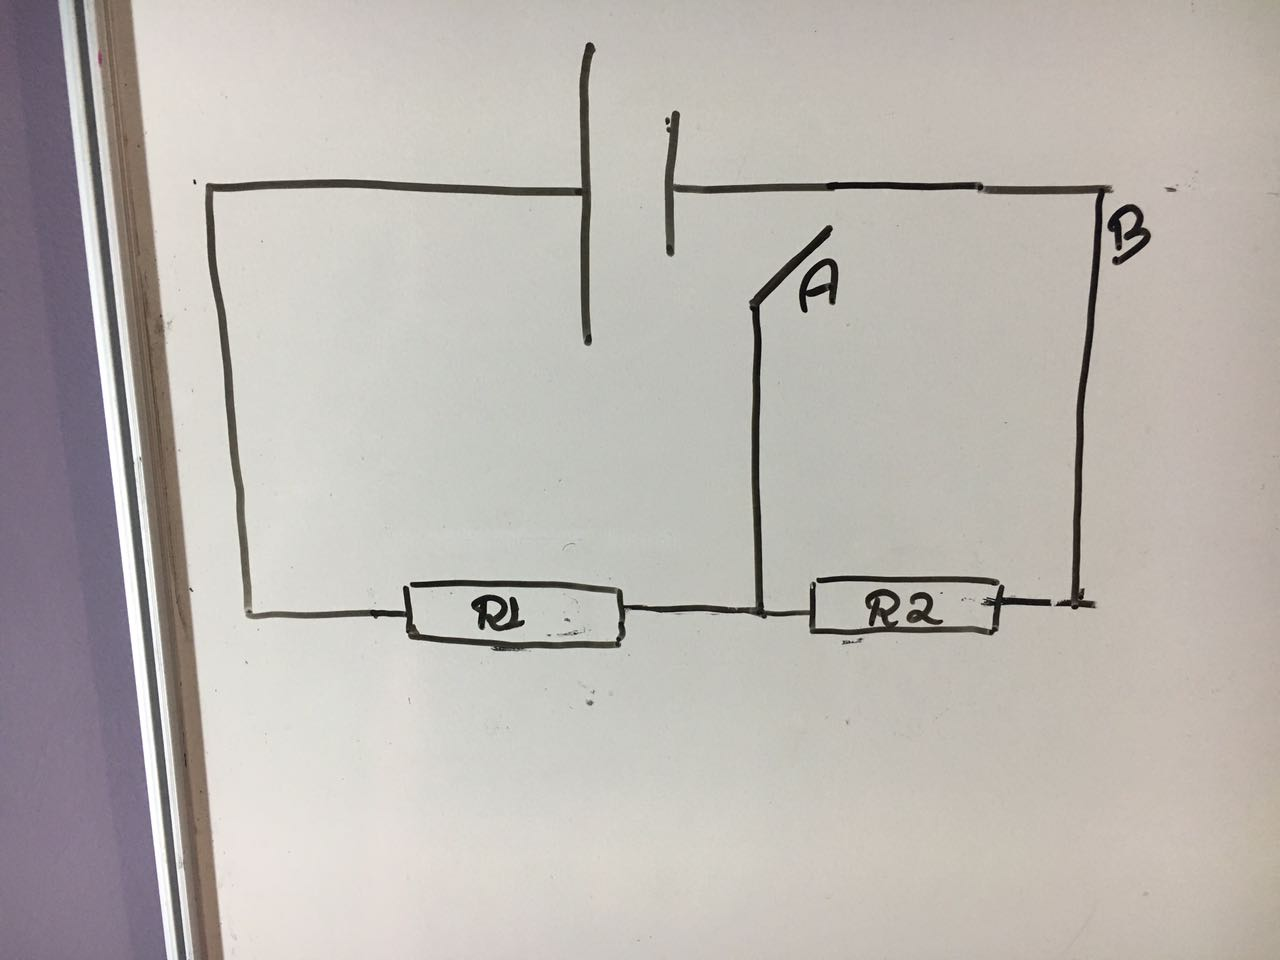 B
A
R1
R2